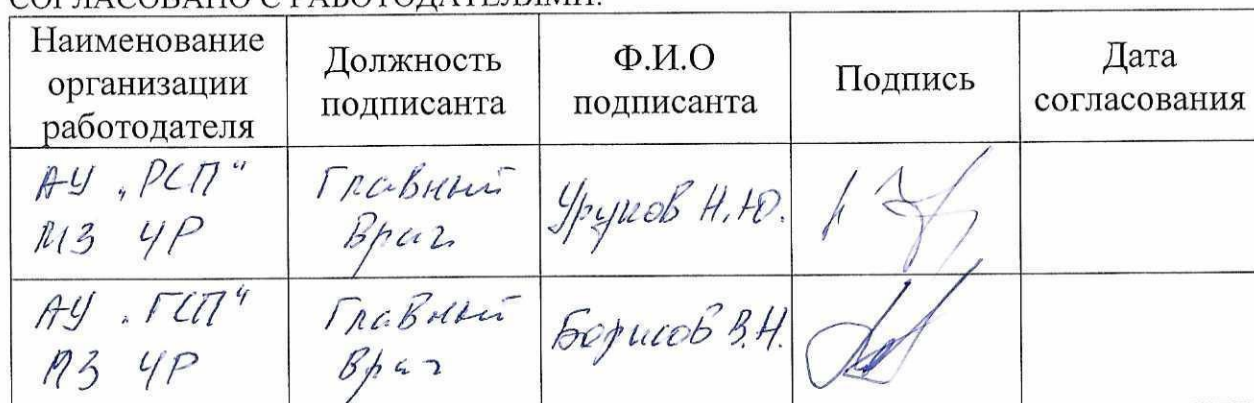 СОГЛАСОВАНО С РАБОТОДАТЕЛЯМИ:
Наименование организации работодателя
Должность подписанта
Ф.И.О подписанта
Подпись
Дата согласования
АУ „РСП“
МЗ ЧР
Главный
Врач
Уруков Н.Ю.
АУ „ГСП“
МЗ ЧР
Главный
Врач
Борисов В.Н.